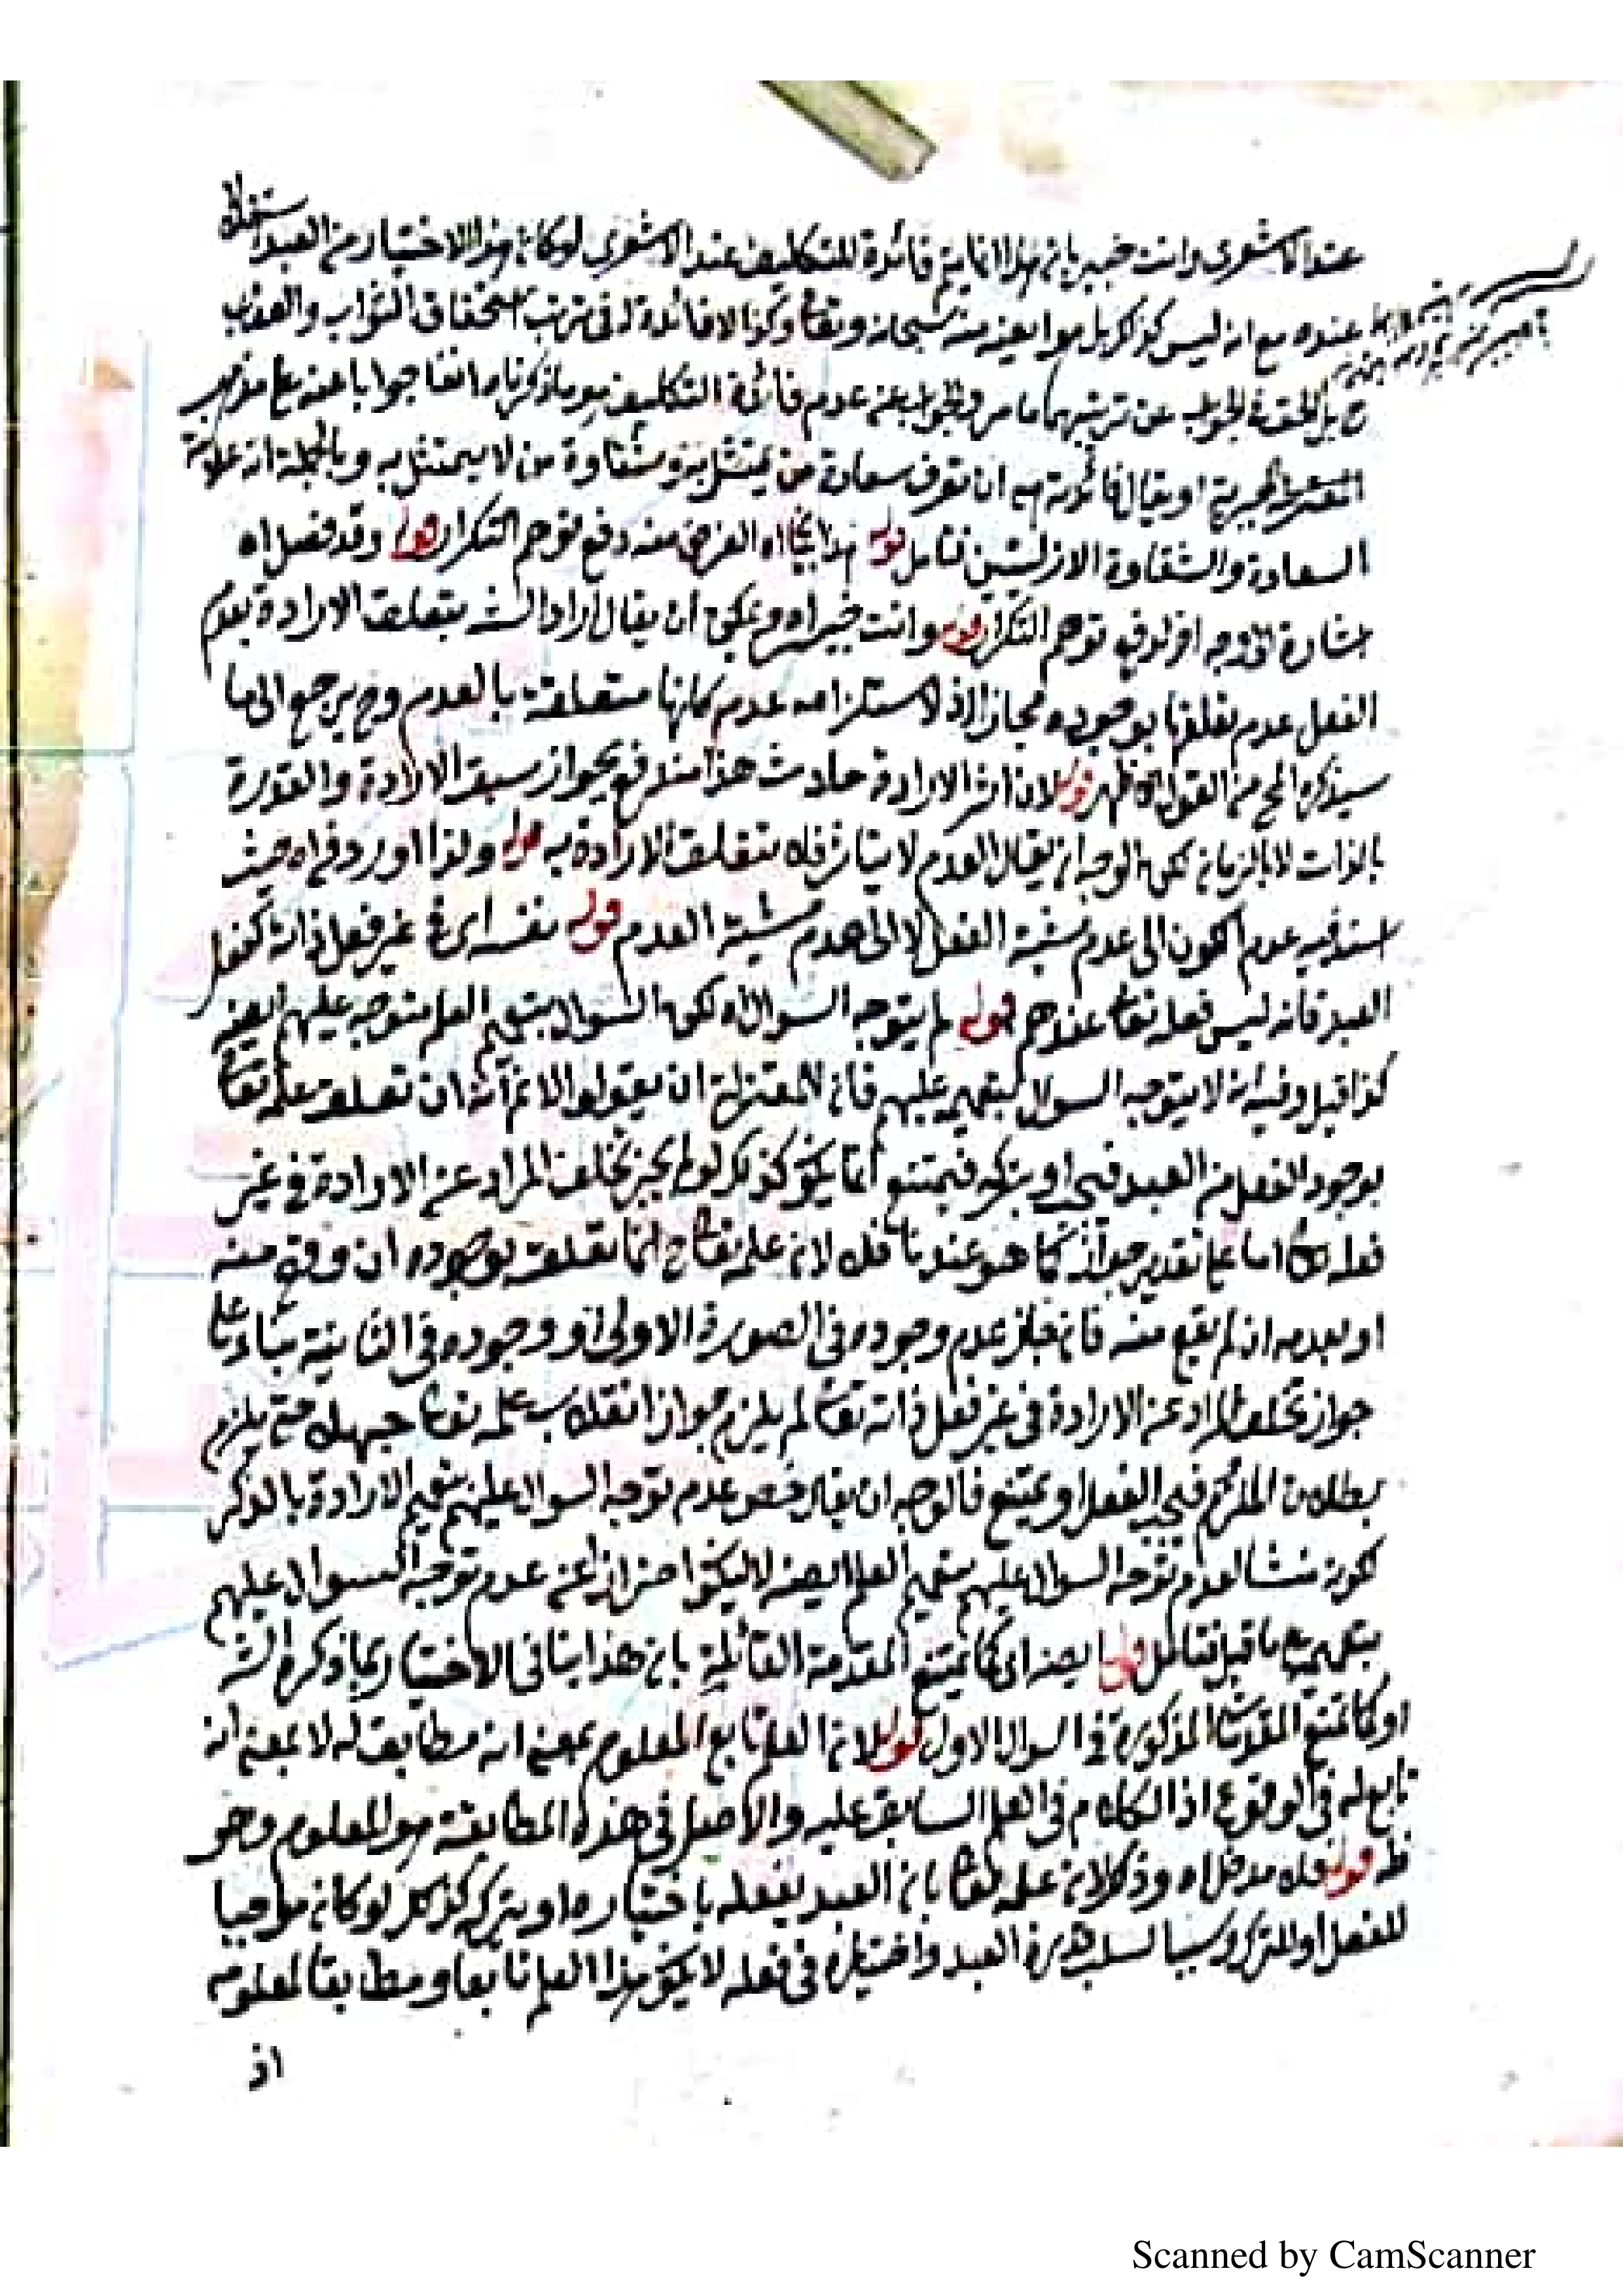 عند الاشعرى وانت خبير بان هذا انما يتم فائدة للتكليف عند الاشعرى لو كان هذا الاختيار من العبد
عنده مع انه ليس كذلك بل هو ايضا منه سبحانه وتعالى وكذا لا فائدة له فى ترتب استحقاق الثواب والعقاب
ح بل الجواب عن ترتبهما ما مر والجواب عن عدم فائدة التكليف هو ما ذكرناه انفا جوابا عنه على مذهب
الجبرية او يقال فائدته هى ان تعرف سعادة من يمتثل به وشقاوة من لا يمتثل به وبالجملة انه علامة
السعادة والشقاوة الازليتين فتأمل قوله هذا اه الغرض منه دفع توهم التكرار قوله وقد فصل اه
اشارة الى وجه اخر لدفع توهم التكرار قوله وانت خبير اه ويمكن ان يقال اراد الش بتعلق الارادة بعدم
الفعل عدم تعلقها بوجوده مجازا اذ لاستلزامه عدمه كانها متعلقة بالعدم وح يرجع الى ما
سيذكره المح من القول الاظهر قوله لان اثر الارادة حادث هذا مندفع بجواز سبق الارادة والقدرة
بالذات لا بالزمان لكن الوجه ان يقال العدم لا يتأثر فلا تتعلق الارادة به قوله ولذا اورد فى اه حيث
اسند فيه عدم الكون الى عدم مشية الفعل لا الى مشية العدم قوله نفسه اى فى غير فعل ذاته كفعل
العبد فانه ليس فعله تعالى عندهم قوله لم يتوجه السؤال اه لكن السؤال بتعميم العلم متوجه عليهم ايضا
كذا قيل وفيه انه لا يتوجه السؤال بتعميمه عليهم فان للمعتزلة ان يقولوا لا نم انه ان تعلق علمه تعالى
بوجود الفعل من العبد فيجب او بتركه فيمتنع انما يكون كذلك لو لم يجز تخلف المراد عن الارادة فى غير
فعله تعالى اما على تقدير جوازه كما هو عندنا فلا لان علمه تعالى ح انما تعلق بوجوده ان وقع منه
او بعدمه ان لم يقع منه فان جاز عدم وجوده فى الصورة الاولى او وجوده فى الثانية بناء على
جواز تخلف المراد عن الارادة فى غير فعل ذاته تعالى لم يلزم جواز انقلاب علمه تعالى جهلا حتى يلزم
بطلان الملزوم فيجب الفعل او يمتنع فالوجه ان يقال خص عدم توجه السؤال عليهم بتعميم الارادة بالذكر
لكونه منشأ لعدم توجه السؤال عليهم بتعميم العلم ايضا لا ليكون احترازا عن عدم توجه السؤال عليهم
بتعميمه على ما قيل فتأمل قوله ايضا اى كما يمتنع المقدمة القائلة بان هذا ينافى الاختيار بما ذكره الش
او كما تمنع المقدمة المذكورة فى السؤال الاول قوله لان العلم تابع للمعلوم بمعنى انه مطابق له لا بمعنى انه
تابع له فى الوقوع اذ الكلام فى العلم السابق عليه والاصل فى هذه المطابقة هو المعلوم وهو
ظ قوله فلا مدخل اه وذلك لان علمه تعالى بان العبد يفعله باختياره او يتركه كذلك لو كان موجبا
للفعل او للترك وسببا لسلب قدرة العبد واختياره فى فعله لا يكون هذا العلم تابعا ومطابقا لمعلومه
اذ
Scanned by CamScanner